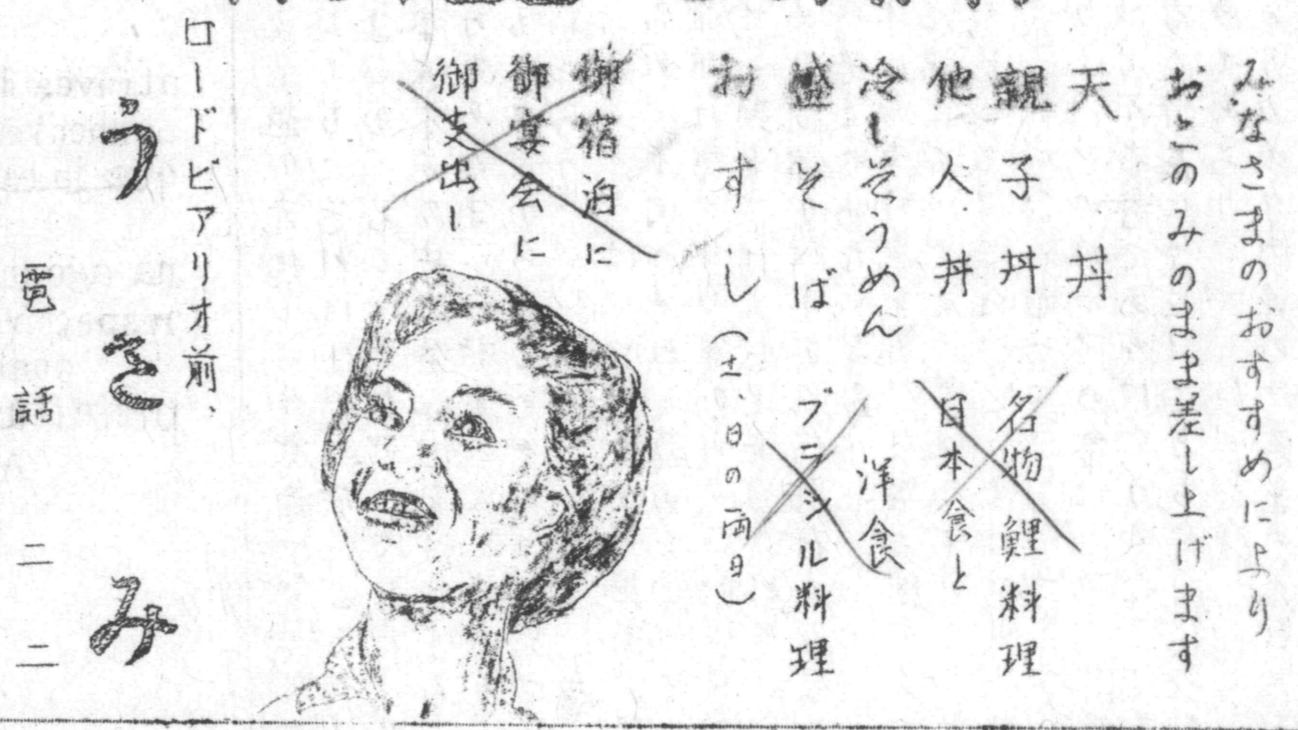 みなさまのおすすめにより
おこのみのまま差し上げます
天丼
親子丼
他人丼
冷しそうめん
盛そば
おすし(土、日の両日)
名物鯉料理
日本食と
洋食
ブラジル料理
御宿泊に
御宴会に
御支出し
ロードビアリオ前、
うきみ
電話 二二